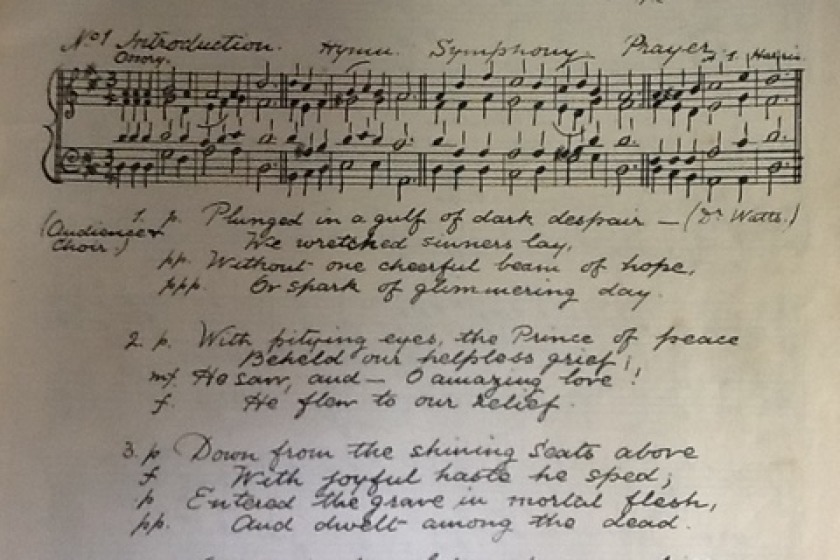 No 1 Introduction. Hymn. Symphony. Prayer.
Harris.
(Audience & Choir.)
1. p. Plunged in a gulf of dark despair — (Dr Watts.)
We wretched sinners lay,
pp. Without one cheerful beam of hope,
ppp. Or spark of glimmering day.
2. p. With pitying eyes, the Prince of peace
Beheld our helpless grief;
mf. He saw, and — O amazing love!
f. He flew to our relief.
3. p Down from the shining seats above
f With joyful haste he sped;
p Entered the grave in mortal flesh,
pp. And dwelt among the dead.